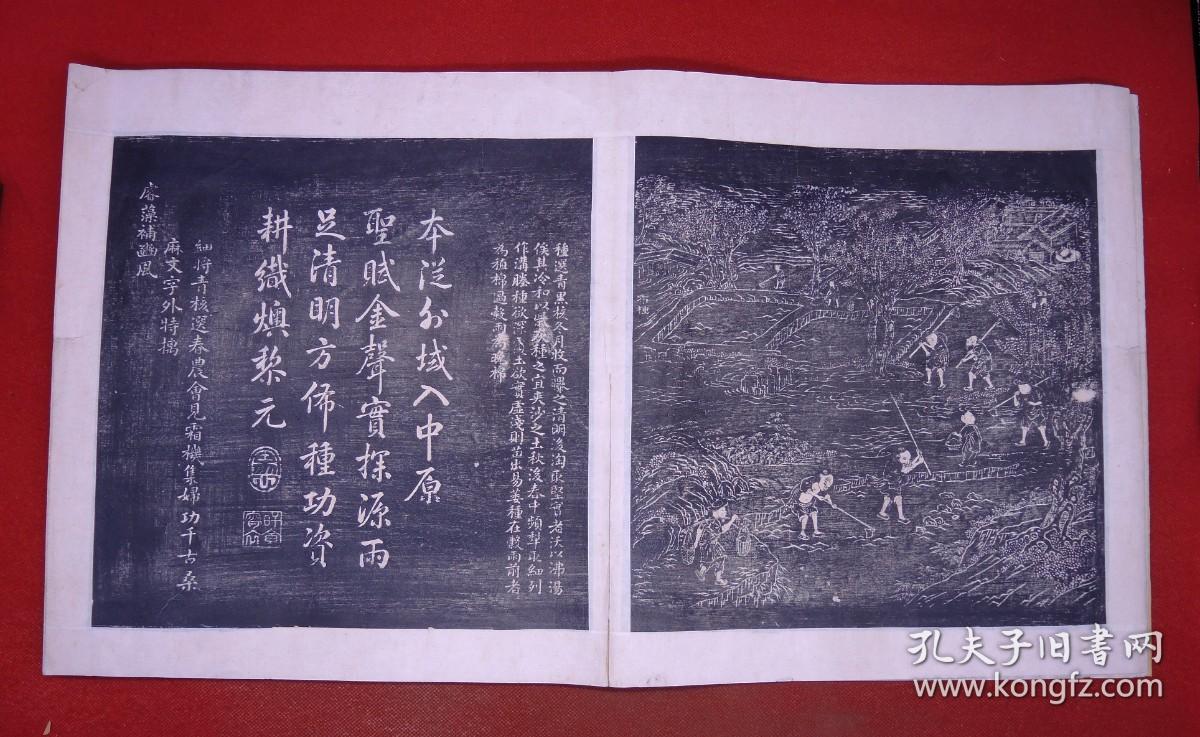 布種
種選青黑核冬月收而曝之清明後淘取堅實者沃以沸湯
俟其冷和以柴灰種之宜夾沙之土秋後春中頻犁取細列
作溝塍種欲深覆土欲實虛淺則苗出易萎種在穀雨前者
為植棉過穀雨為晚棉
本從外域入中原
聖賦金聲實探源雨
足清明方佈種功資
耕織燠黎元
細將青核選春農會見霜機集婦功千古桑
麻文字外特摛
睿藻補豳風
孔夫子旧书网
www.kongfz.com